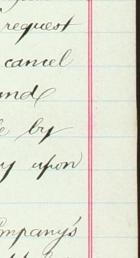 request
cancel
and
by
y upon
ompany's